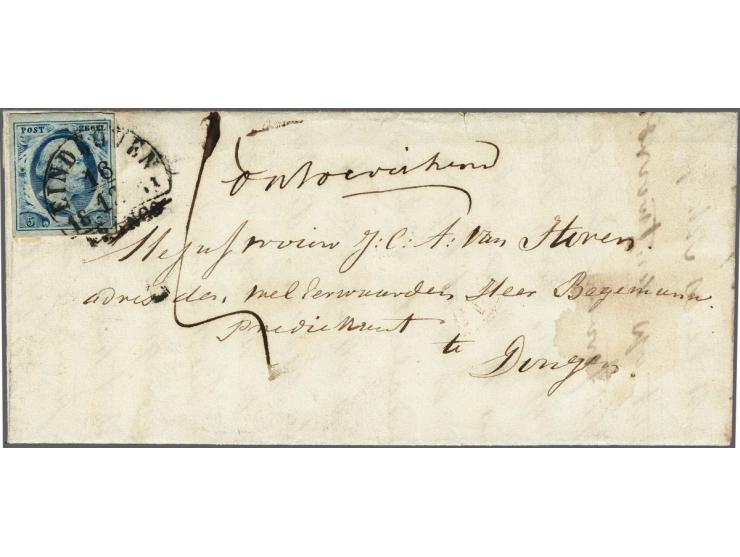 POST ZEGEL
5 C
EINDHOVEN
16
FRANCO
Mejufvrouw J: C: A: Van Hoven.
adres den, Wel Eerwaarden Heer Begemann
Predickant
te
Dongen.